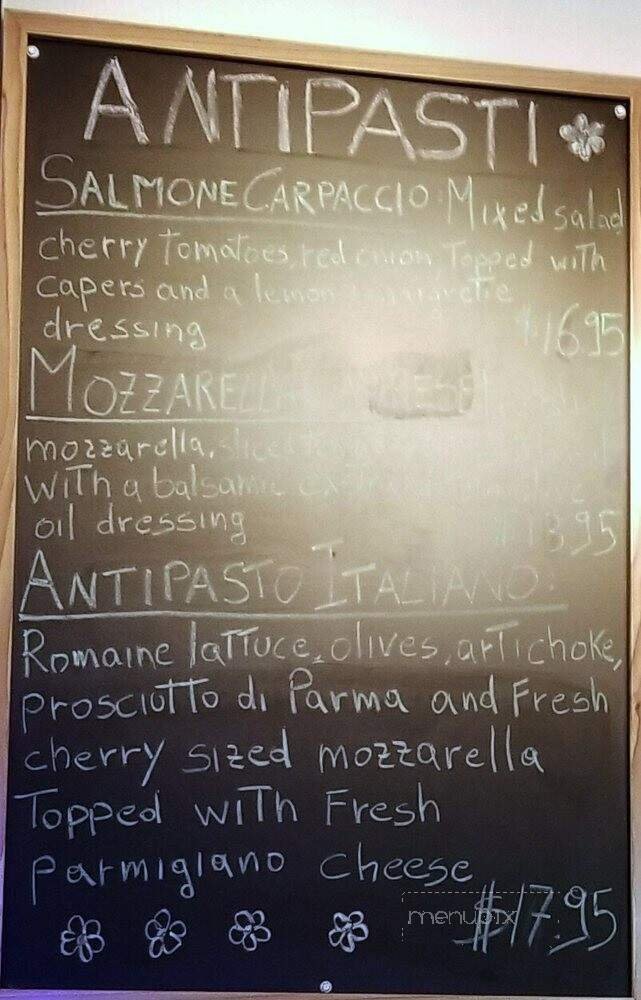 ANTIPASTI
SALMONE CARPACCIO: Mixed salad
cherry tomatoes, red onion Topped with
capers and a lemon
dressing $16.95
MOZZARELLA CAPRESE
mozzarella, sliced
with a balsamic extra
oil dressing $13.95
ANTIPASTO ITALIANO:
Romaine lattuce, olives, artichoke,
prosciutto di Parma and Fresh
cherry sized mozzarella
Topped with Fresh
parmigiano cheese
$17.95
menupix